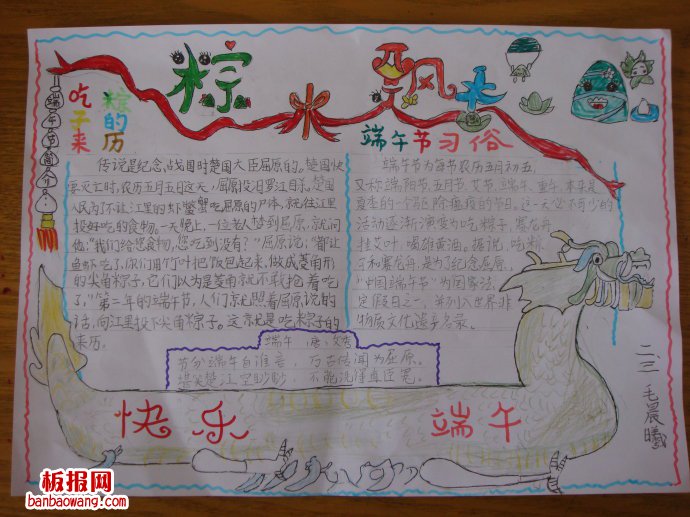 粽米飘香
端午节简介：
吃粽子的来历
端午节习俗
传说是纪念战国时楚国大臣屈原的。楚国快
要灭亡时，农历五月五日这天，屈原投汨罗江自杀，楚国
人民为了不让江里的虾蟹吃屈原的尸体，就往江里
投好吃的食物。一天晚上，一位老人梦到屈原，就问
他："我们给您食物，您吃到没有？"屈原说，"都让
鱼虾吃了，你们用竹叶把饭包起来，做成菱角形
的尖角粽子，它们以为是菱角就不敢抢着吃
了，"第二年的端午节，人们就照着屈原说的
话，向江里投下尖角粽子。这就是吃粽子的
来历。
端午节为每年农历五月初五，
又称端阳节、五月节、艾节、端午、重午，本来是
夏季的一个驱除瘟疫的节日。这一天必不可少的
活动逐渐演变为吃粽子，赛龙舟，
挂艾叶，喝雄黄酒。据说，吃粽
子和赛龙舟，是为了纪念屈原，
"中国端午节"为国家法
定假日之一，并列入世界非
物质文化遗产名录。
端午 唐：文秀
节分端午自谁言，万古传闻为屈原。
堪笑楚江空渺渺，不能洗得直臣冤。
快乐端午
二、三 毛晨曦
板报网
banbaowang.com